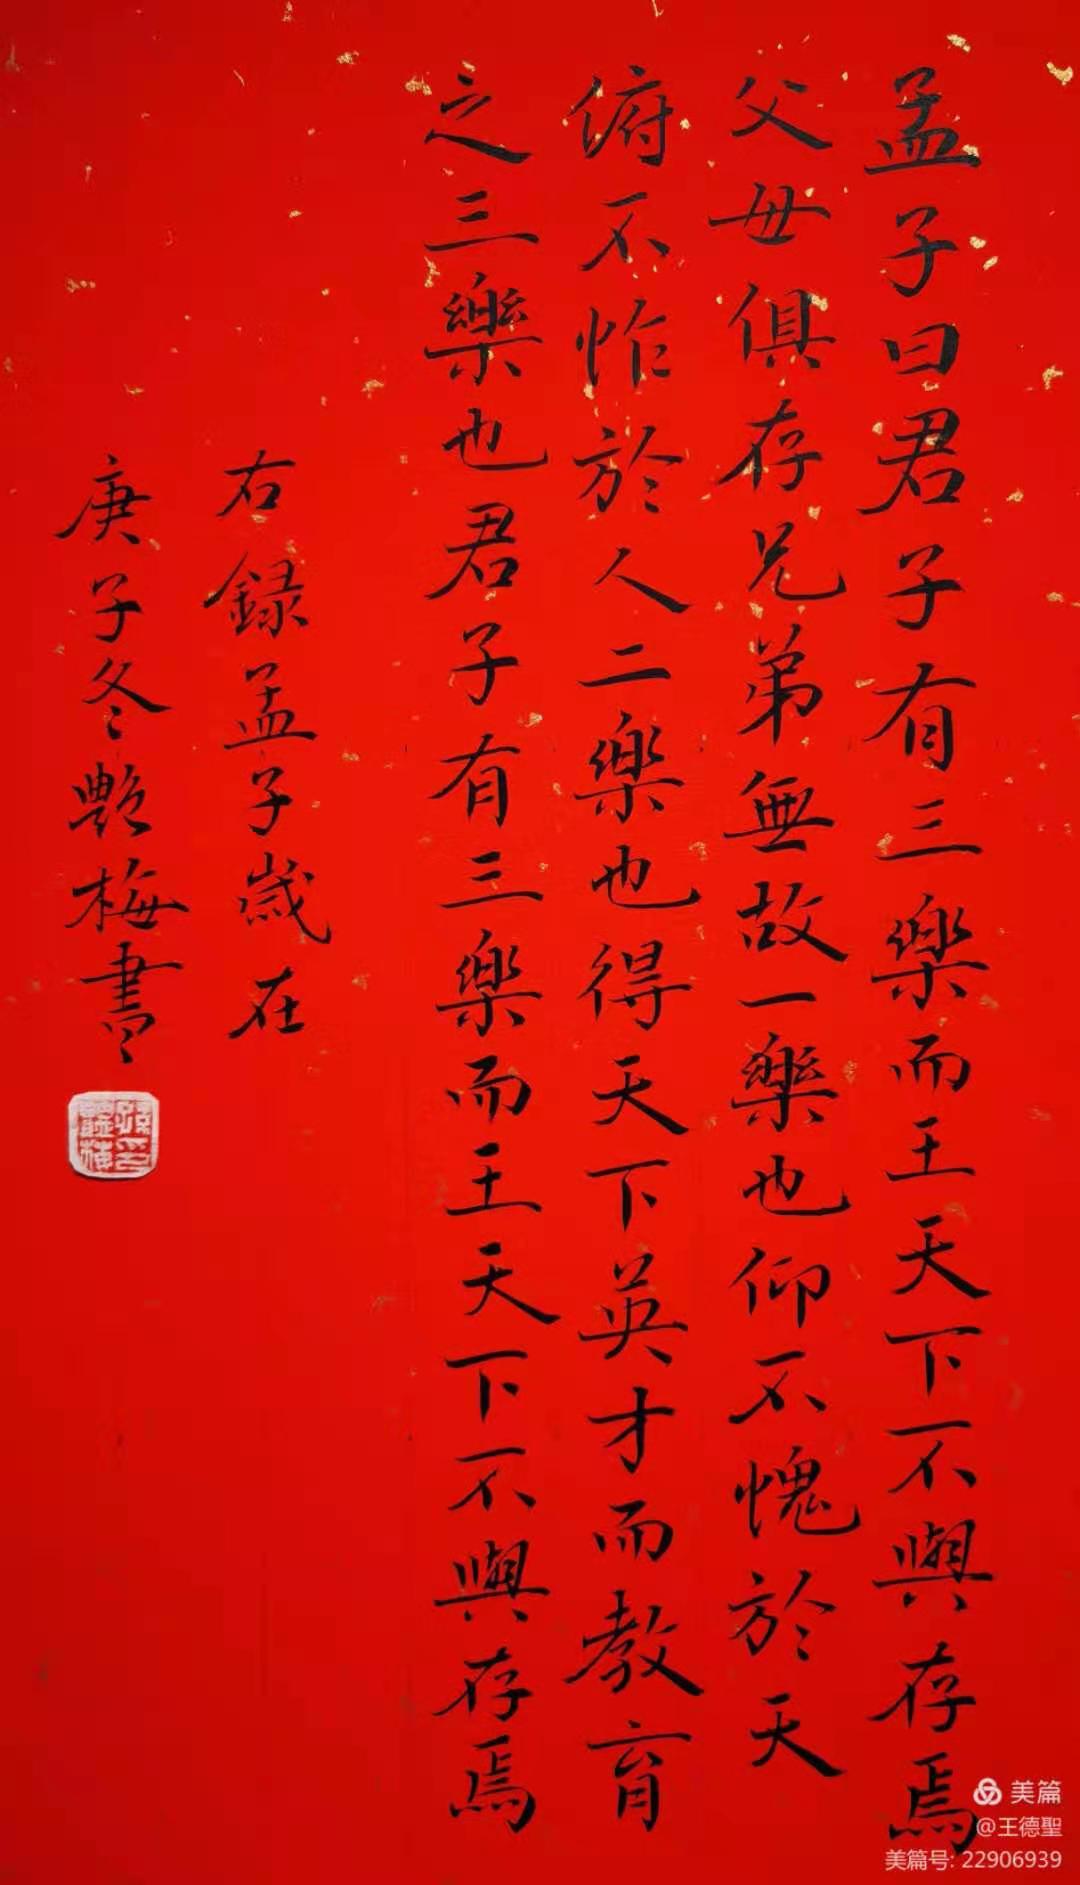 孟子曰君子有三樂而王天下不與存焉
父母俱存兄弟無故一樂也仰不愧於天
俯不怍於人二樂也得天下英才而教育
之三樂也君子有三樂而王天下不與存焉
右録孟子歲在
庚子冬艷梅書
美篇
@王德聖
美篇号: 22906939